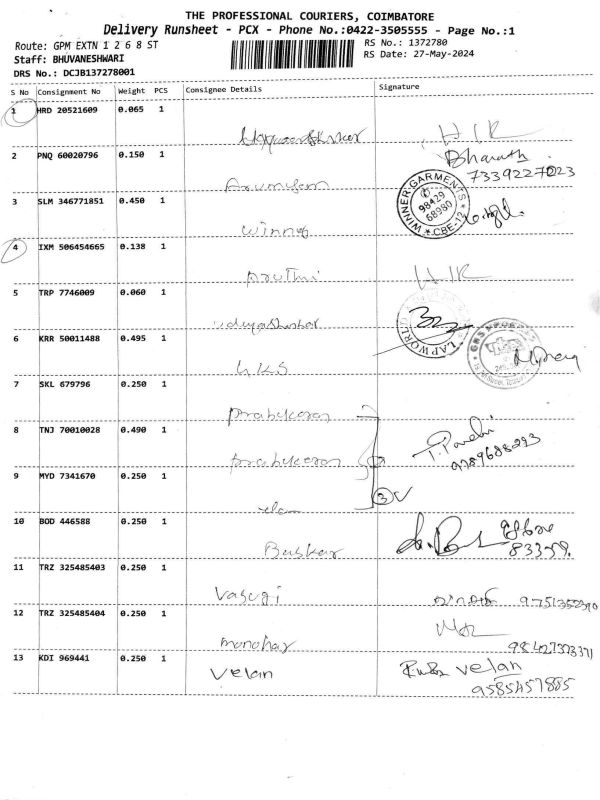 THE PROFESSIONAL COURIERS, COIMBATORE
Delivery Runsheet - PCX - Phone No.:0422-3505555 - Page No.:1
Route: GPM EXTN 1 2 6 8 ST
RS No.: 1372780
Staff: BHUVANESHWARI
RS Date: 27-May-2024
DRS No.: DCJB137278001
S No Consignment No Weight PCS Consignee Details Signature
1 HRD 20521609 0.065 1
H/R
2 PNQ 60020796 0.150 1
Bharath
7339227023
3 SLM 346771851 0.450 1
WINNER GARMENTS
98429
68980
CBE-12
winner
4 IXM 506454665 0.138 1
pruthi H/R
5 TRP 7746009 0.060 1
LAPWORLD
6 KRR 50011488 0.495 1
GKS
7 SKL 679796 0.250 1
prabykaran
8 TNJ 70010028 0.490 1
prabykaran
T. Pandi
9789688293
9 MYD 7341670 0.250 1
3
10 BOD 446588 0.250 1
Baskar
11 TRZ 325485403 0.250 1
Vasugi
9751352390
12 TRZ 325485404 0.250 1
manohar
13 KDI 969441 0.250 1
Velan
velan
9585457885